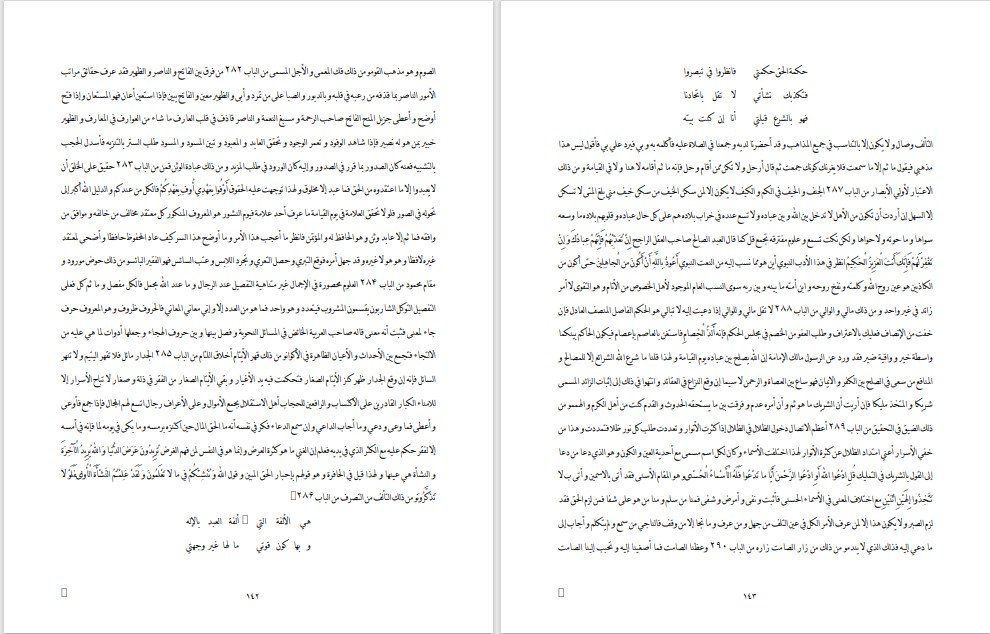 الصوم و هو مذهب القومو من ذلك فك المعمى و الأجل المسمى من الباب ٢٨٢ من فرق بين الفاتح و الناصر و الظهير فقد عرف حقائق مراتب
الأمور الناصر بما قذفه من رعبه في قلبه و بالدبور و الصبا على من تمرد و أبى و الظهير معين و الفاتح يبين فإذا استعين أعان فهو المستعان و إذا فتح
أوضح و أعطى جزيل المنح الفاتح صاحب الرحمة و سبغ النعمة و الناصر قاذف في قلب العارف ما شاء من العوارف في المعارف و الظهير
خبير بمن هو له نصير فإذا شاهد الوفود و تعمر الوجود و تحقق العابد و المعبود و تبين المسود و المسود طلب الستر بالتنزيه فأسدل الحجب
بالتشبيه فعنه كان الصدور بما قرر في الصدور و إليه كان الورود في طلب المزيد و من ذلك عبادة الوثن قمن من الباب ٢٨٣ حقيق على الخلق أن
لا يعبدوا إلا ما اعتقدوه من الحق فما عبد إلا مخلوق و لهذا توجهت عليه الحقوق أَوْفُوا بِعَهْدِي أُوفِ بِعَهْدِكُمْ فالكل من عندكم و الدليل الله أكبر إلى
تحوله في الصور فلو لا تحقق العلامة في يوم القيامة ما عرف أحد علامة فيوم النشور هو المعروف المنكور كل معتقد مخالف من خالفه و موافق من
وافقه فما ثم إلا عابد وثن و هو الحافظ له و المؤتمن فانظر ما أعجب هذا الأمر و ما أوضح هذا السر كيف عاد المحفوظ حافظا و أضحى لمعتقد
غيره لافظا و هو هو لا غيره و قد جهل أمره فوقع التبري و حصل التعري و تجرد اللابس و عتب السائس فهو الفقير البائسو من ذلك حوض مورود و
مقام محمود من الباب ٢٨٤ العلوم محصورة في الإجمال غير متناهية التفصيل عند الرجال و ما عند الله مجمل فالكل مفصل و ما ثم كل فعلى
التفصيل التوكل الشاربون يقسمون المشروب فيتعدد و هو واحد فما هو من العدد إلا و إني معاني المعاني فالحروف ظروف و هو المعروف حرف
جاء لمعنى فثبت أنه معنى قاله صاحب العربية الخائض في المسائل النحوية و فصل بينها و بين حروف الهجاء و جعلها أدوات لما هي عليه من
الالتجاء فتجمع بين الأحداث و الأعيان الظاهرة في الأكوانو من ذلك قهر الأيتام أخلاق اللئام من الباب ٢٨٥ الجدار مائل فلا تقهر اليتيم و لا تنهر
السائل فإنه إن وقع الجدار ظهر كنز الأيتام الصغار فتحكمت فيه يد الأغيار و بقي الأيتام الصغار من الفقر في ذلة و صغار لا تباح الأسرار إلا
للامناء الكبار القادرين على الاكتساب و الرافعين للحجاب أهل الاستقلال بجمع الأموال و على الأعراف رجال اتسع لهم المجال فإذا جمع فأوعى
و أعطى فما وعى و دعي و ما أجاب الداعي و إن سمع الدعاء فكر في نفسه أنه ما الحق المال حين اكتنزه برمسه و ما يكنى في يومه لما فاته في أمسه
إلا لفقر حكم عليه مع الكثر الذي في يديه فعلم إن الغني ما هو كثرة العرض و إنما هو في النفس لمن فهم الغرض تُرِيدُونَ عَرَضَ الدُّنْيا وَ اللهُ يُرِيدُ الْآخِرَةَ
و النشأة هي عينها و لهذا قيل في الحافرة و هو قولهم بإحبار الحق المبين و قول الله وَ نُنْشِئَكُمْ فِي ما لا تَعْلَمُونَ وَ لَقَدْ عَلِمْتُمُ النَّشْأَةَ الْأُولى فَلَوْ لا
تَذَكَّرُونَو من ذلك التألف من التصرف من الباب ٢٨٦
هي الألفة التي ألفة العبد بالإله
و بها كون قوتي ما لها غير وجهتي
١٤٢
حكمة الحق حكمتي فانظروا في تبصروا
فتكذبك نشأتي لا تقل باتحادنا
فهو بالشرع قبلتي أنا إن كنت بيته
التألف وصال و لا يكون إلا بالتناسب في جميع المذاهب و قد أحضرنا لديه و جمعنا في الصلاة عليه فأكلمه به و بي فيرد علي بي فأقول ليس هذا
مذهبي فيقول ما ثم إلا ما سمعت فلا يغرنك كونك جمعت ثم قال أرحل و لا تكن ممن أقام و حل فإنه ما ثم أقامه لا هنا و لا في القيامة و من ذلك
الاعتبار لأولي الأبصار من الباب ٢٨٧ الجنف و الحيف في الكم و الكيف لا يكون إلا لمن سكن الخيف من سكن خيف منى بلغ المنى لا تسكن
إلا السهل إن أردت أن تكون من الأهل لا تدخل بين الله و بين عباده و لا تسع عنده في خراب بلاده هم على كل حال عباده و قلوبهم بلاده ما وسعه
سواها و ما حوته و لا حواها و لكن نكت تسمع و علوم مفترقة تجمع قل كما قال العبد الصالح صاحب العقل الراجح إِنْ تُعَذِّبْهُمْ فَإِنَّهُمْ عِبادُكَ وَ إِنْ
تَغْفِرْ لَهُمْ فَإِنَّكَ أَنْتَ الْعَزِيزُ الْحَكِيمُ انظر في هذا الأدب النبوي أين هو مما نسب إليه من النعت النبوي أَعُوذُ بِاللهِ أَنْ أَكُونَ مِنَ الْجاهِلِينَ حتى أكون من
الكاذبين هو عين روح الله و كلمته و نفخ روحه و ابن أمته ما بينه و بين ربه سوى النسب العام الموجود لأهل الخصوص من الأنام و هو التقوى لا أمر
زائد في غير واحد و من ذلك مالي و الوالي من الباب ٢٨٨ لا تقل مالي و للوالي إذا دعيت إليه لا تبالي هو الحكم الفاصل المنصف العادل فإن
خفت من الإنصاف فعليك بالاعتراف و طلب العفو من الخصم في مجلس الحكم فإنه أَلَدُّ الْخِصامِ فاستغن بالعاصم بإعصام فيكون الحاكم بينكما
واسطة خير و واقية ضير فقد ورد عن الرسول مالك الإمامة إن الله يصلح بين عباده يوم القيامة و لهذا قلنا ما شرع الله الشرائع إلا للمصالح و
المنافع من سعى في الصلح بين الكفر و الايمان فهو ساع بين العصاة و الرحمن لا سيما إن وقع النزاع في العقائد و انتهوا في ذلك إلى إثبات الزائد المسمى
شريكا و المتخذ مليكا فإن أربت أن الشريك ما هو ثم و أن أمره عدم و فرقت بين ما يستحقه الحدوث و القدم كنت من أهل الكرم و الهممو من
ذلك الضيق في التحقيق من الباب ٢٨٩ أعظم الاتصال دخول الظلال في الظلال إذا كثرت الأنوار و تعددت طلب كل نور ظلا فتمددت و هذا من
خفي الأسرار أعني امتداد الظلال عن كثرة الأنوار لهذا اختلفت الأسماء و كان لكل اسم مسمى مع أحدية العين و الكون و هو الذي دعا من دعا
إلى القول بالشريك في التمليك قُلِ ادْعُوا اللهَ أَوِ ادْعُوا الرَّحْمنَ أَيًّا ما تَدْعُوا فَلَهُ الْأَسْماءُ الْحُسْنى و هو المقام الأسنى فقد أتى بالاسمين و أتى ب لا
تَتَّخِذُوا إِلهَيْنِ اثْنَيْنِ مع اختلاف المعنى في الأسماء الحسنى فأثبت و نفى و أمرض و شفى فمنا من سلم و منا من هو على شفا فمن لزم الحق فقد
لزم الصبر و لا يكون هذا إلا لمن عرف الأمر الكل في عين التلف من جهل و من عرف و ما نجا إلا من وقف فالناجي من سمع و لم يتكلم و أجاب إلى
ما دعي إليه فذلك الذي لا يندمو من ذلك من زار الصامت زاره من الباب ٢٩٠ وعظنا الصامت فما أصغينا إليه و تحبب إلينا الصامت
١٤٣